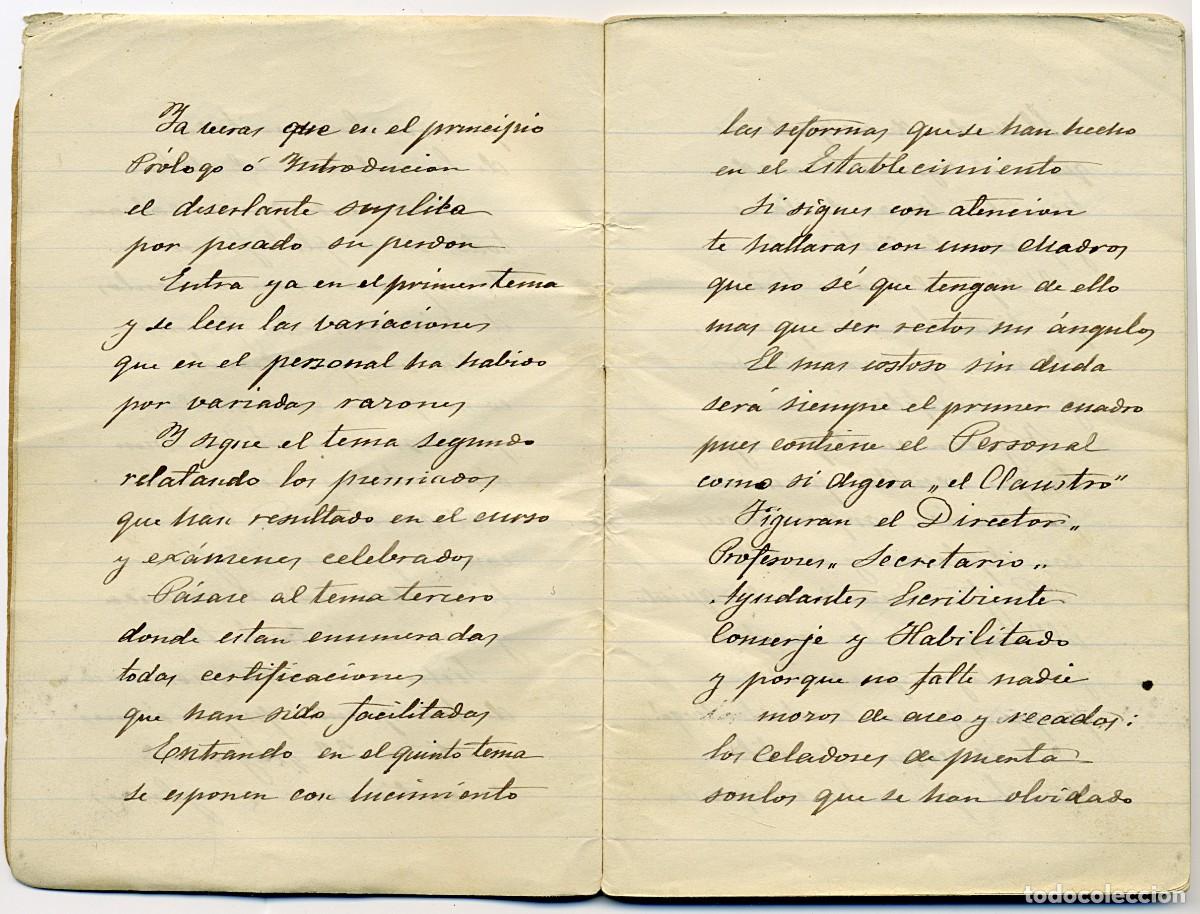 Ya veras que en el principio
Prólogo ó Introducion
el disertante suplica
por pesado su perdon
Entra ya en el primer tema
y se leen las variaciones
que en el personal ha habido
por variadas razones
Y sigue el tema segundo
relatando los premiados
que han resultado en el curso
y exámenes celebrados
Pásase al tema tercero
donde estan enumeradas
todas certificaciones
que han sido facilitadas
Entrando en el quinto tema
se esponen con lucimiento
las reformas que se han hecho
en el Establecimiento
Si sigues con atencion
te hallaras con unos cuadros
que no sé que tengan de ello
mas que ser rectos sus ángulos
El mas costoso sin duda
será siempre el primer cuadro
pues contiene el Personal
como si digera „el Claustro"
Figuran el Director„
Profesores„ Secretario„
Ayudantes Escribiente
Conserje y Habilitado
y porque no falte nadie
mozos de aseo y recados:
los Celadores de puerta
son los que se han olvidado
todocoleccion